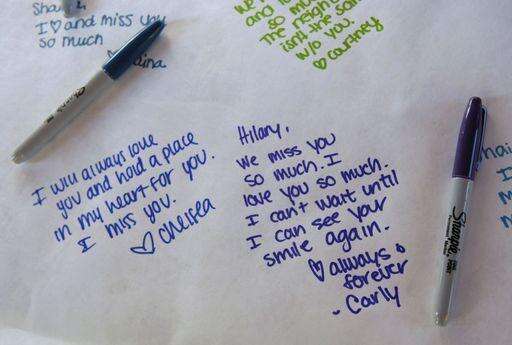 I ♡ and miss you
so much
and
so mu
the neigh
isn't the sa
w/o you.
♡ Courtney
I will always love
you and hold a place
in my heart for you.
I miss you.
♡ Chelsea
Hilary,
We miss you
so much. I
love you so much.
I can't wait until
I can see your
smile again.
♡ always &
forever
- Carly
Sharpie